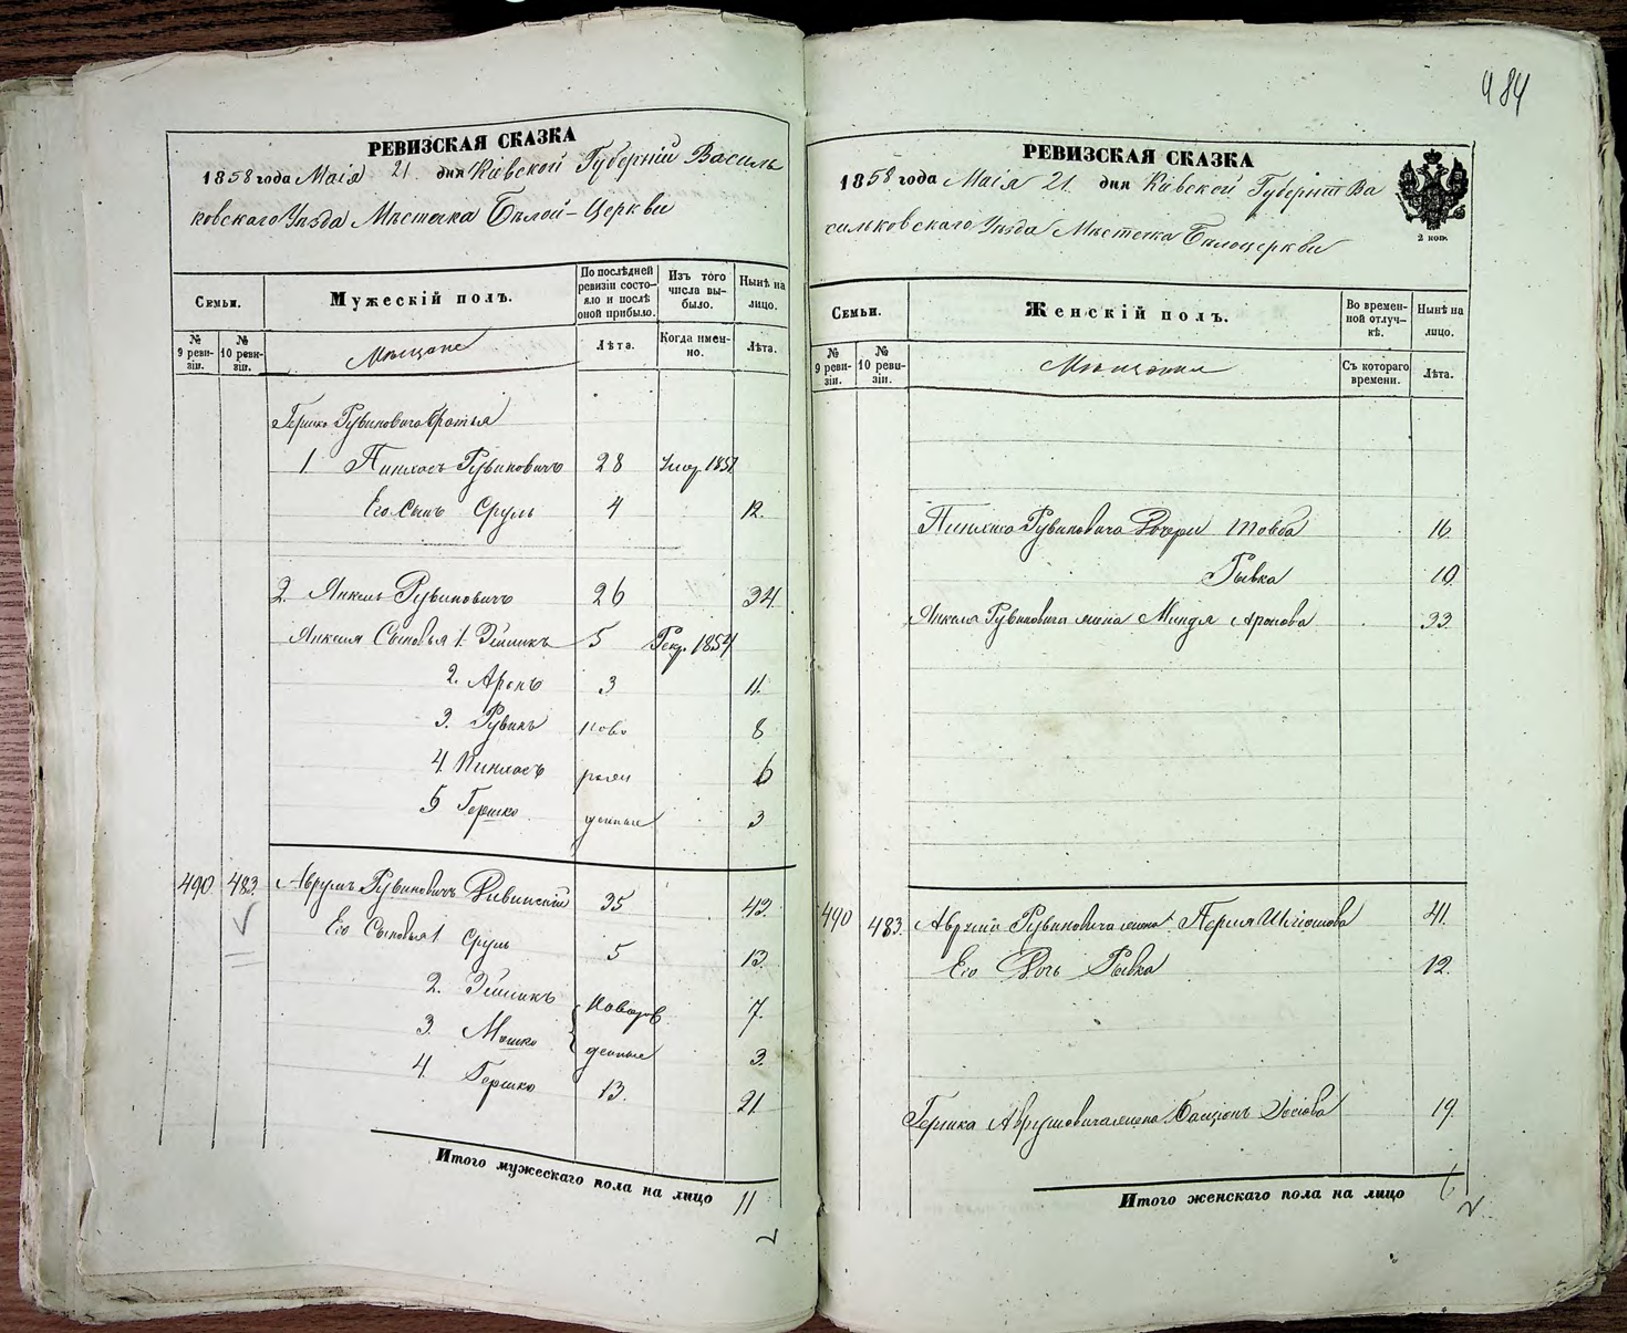 484
РЕВИЗСКАЯ СКАЗКА
1858 года Маія 21. дня Кіевской Губерніи Василь
ковскаго Уѣзда Мѣстечка Бѣлой-Церкви
Семьи.
Мужескій полъ.
По послѣдней ревизіи состояло и послѣ оной прибыло.
Изъ того числа выбыло.
Нынѣ на лицо.
№ 9 ревизіи.
№ 10 ревизіи.
Мѣщане
Лѣта.
Когда именно.
Лѣта.
Гершка Рувиновича братья
1 Пинхасъ Рувиновичъ 28 Умер. 1851
Его Сынъ Сруль 4 12.
2. Янкель Рувиновичъ 26 34.
Янкеля Сыновья 1. Зейликъ 5 Рекр. 1854
2. Аронъ 3 11.
3. Рувинъ ново 8
4. Пинхасъ рож 6
5 Гершко денные 3
490 483. Аврумъ Рувиновичъ Ривинскій 35 43.
Его Сыновья 1 Сруль 5 13.
2. Зейликъ Новорож 7.
3. Мошко денные 3.
4. Гершко 13. 21.
Итого мужескаго пола на лицо 11
РЕВИЗСКАЯ СКАЗКА
1858 года Маія 21. дня Кіевской Губерніи Ва
сильковскаго Уѣзда Мѣстечка Бѣлоцеркви
2 коп.
Семьи.
Женскій полъ.
Во временной отлучкѣ.
Нынѣ на лицо.
№ 9 ревизіи.
№ 10 ревизіи.
Мѣщанки
Съ котораго времени.
Лѣта.
Пинхаса Рувиновича Дочери Товба 16.
Рывка 10.
Янкеля Рувиновича жена Миндля Аронова 33.
490 483. Аврума Рувиновича жена Перля 41.
Его Дочь Рывка 12.
Гершка Аврумовича жена Басціонъ Іосіова 19.
Итого женскаго пола на лицо 6